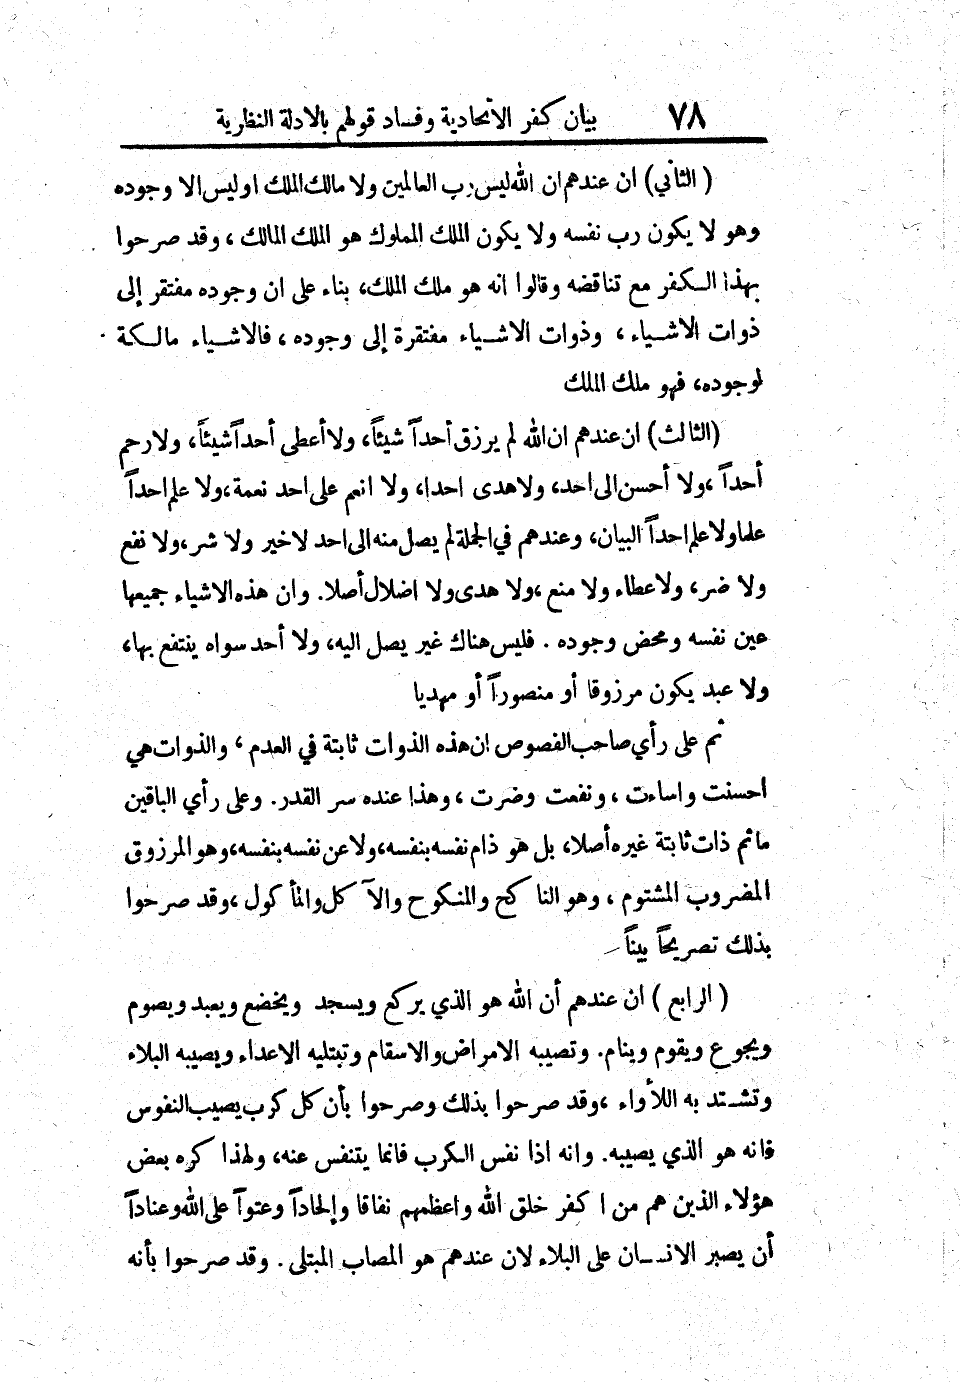 ٧٨ بيان كفر الاتحادية وفساد قولهم بالادلة النظرية
( الثاني) ان عندهم ان الله ليس رب العالمين ولا مالك الملك اوليس الا وجوده
وهو لا يكون رب نفسه ولا يكون الملك المملوك هو الملك المالك ، وقد صرحوا
بهذا الكفر مع تناقضه وقالوا انه هو ملك الملك، بناء على ان وجوده مفتقر إلى
ذوات الاشياء ، وذوات الاشياء مفتقرة إلى وجوده ، فالاشياء مالكة
لوجوده، فهو ملك الملك
(الثالث) ان عندهم ان الله لم يرزق أحداً شيئاً، ولا أعطى أحداً شيئاً، ولا رحم
أحداً ، ولا أحسن الى احد، ولا هدى احدا، ولا انعم على احد نعمة، ولا علم احداً
علما ولا علم احداً البيان، وعندهم في الجملة لم يصل منه الى احد لا خير ولا شر، ولا نفع
ولا ضر، ولا عطاء ولا منع ،ولا هدى ولا اضلال أصلا. وان هذه الاشياء جميعها
عين نفسه ومحض وجوده . فليس هناك غير يصل اليه، ولا أحد سواه ينتفع بها،
ولا عبد يكون مرزوقا أو منصوراً أو مهديا
ثم على رأي صاحب الفصوص ان هذه الذوات ثابتة في العدم ، والذوات هي
احسنت واساءت ، ونفعت وضرت ، وهذا عنده سر القدر. وعلى رأي الباقين
ماثم ذات ثابتة غيره أصلا، بل هو ذام نفسه بنفسه، ولاعن نفسه بنفسه، وهو المرزوق
المضروب المشتوم ، وهو الناكح والمنكوح والآكل والمأكول ، وقد صرحوا
بذلك تصريحاً بيناً
( الرابع ) ان عندهم أن الله هو الذي يركع ويسجد ويخضع ويعبد ويصوم
ويجوع ويقوم وينام. وتصيبه الامراض والاسقام وتبتليه الاعداء ويصيبه البلاء
وتشتد به اللأواء ، وقد صرحوا بذلك وصرحوا بأن كل كرب يصيب النفوس
فانه هو الذي يصيبه. وانه اذا نفس الكرب فانما يتنفس عنه، ولهذا كره بعض
هؤلاء الذين هم من اكفر خلق الله واعظمهم نفاقا وإلحاداً وعتواً على الله وعناداً
أن يصبر الانسان على البلاء لان عندهم هو المصاب المبتلى . وقد صرحوا بأنه